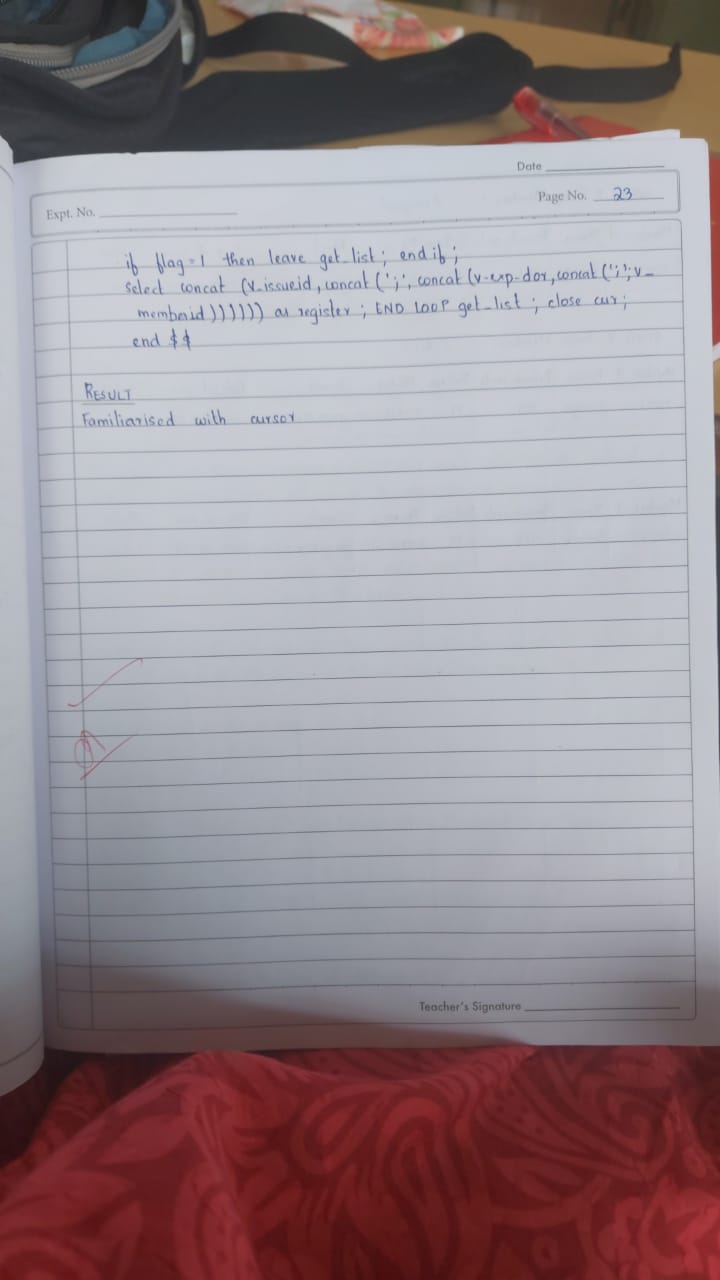 Date
Expt. No.
Page No. 23
if flag=1 then leave get_list; end if;
select concat (v_issueid, concat (';', concat (v-exp-dor, concat (';', v_
memberid)))))) as register; END LOOP get_list; close cur;
end $$
RESULT
Familiarised with cursor
Teacher's Signature